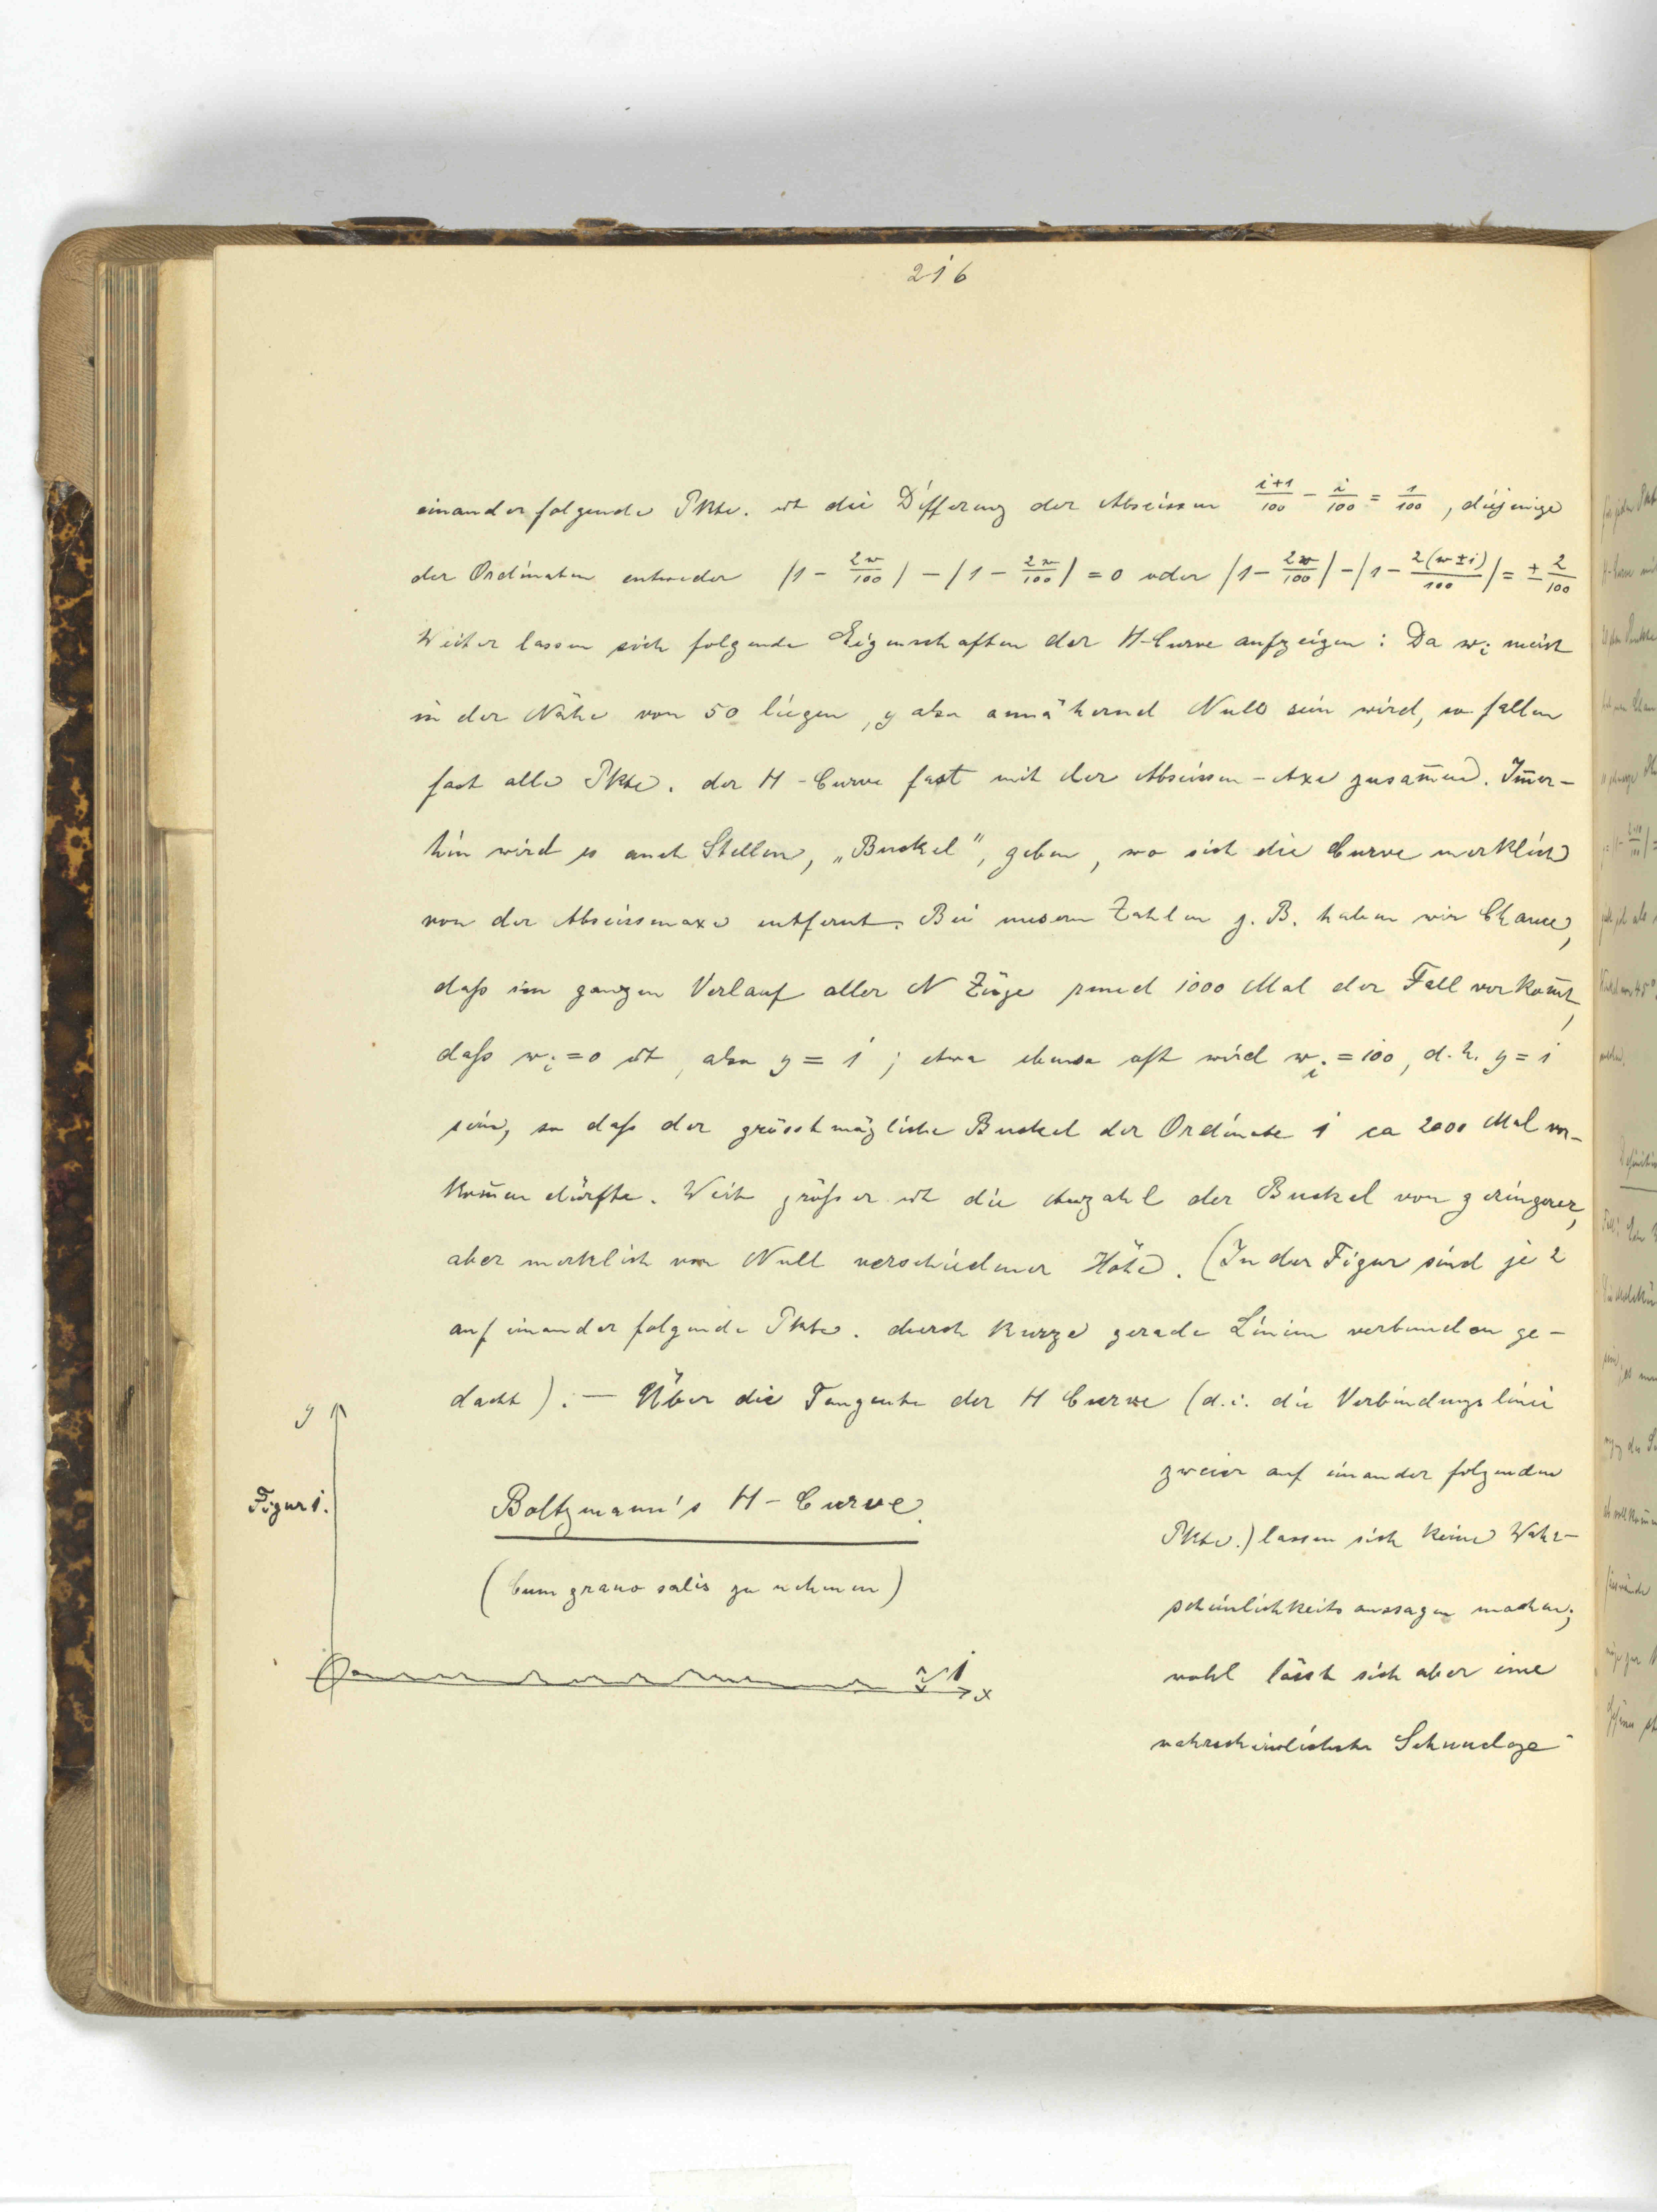 216
einander folgende Pkte. ist die Differenz der Abscissen (i+1)/100 − i/100 = 1/100, diejenige
der Ordinaten entweder |1 − 2w/100| − |1 − 2w/100| = 0 oder |1 − 2w/100| − |1 − 2(w±1)/100| = ± 2/100
Weiter lassen sich folgende Eigenschaften der H-Curve aufzeigen: Da wi meist
in der Nähe von 50 liegen, y also annähernd Null sein wird, so fallen
fast alle Pkte. der H-Curve fast mit der Abscissen-Axe zusam̅en. Im̅er-
hin wird es auch Stellen, „Buckel", geben, wo sich die Curve merklich
von der Abscissenaxe entfernt. Bei unsern Zahlen z. B. haben wir Chance,
daß im ganzen Verlauf aller N Züge rund 1000 Mal der Fall vorkom̅t,
daß wi = 0 ist, also y = 1; etwa ebenso oft wird wi = 100, d. h. y = 1
sein, so daß der grösstmögliche Buckel der Ordinate 1 ca 2000 Mal vor-
kom̅en dürfte. Weit größer ist die Anzahl der Buckel von geringerer,
aber merklich von Null verschiedener Höhe. (In der Figur sind je 2
auf einander folgende Pkte. durch kurze gerade Linien verbunden ge-
dacht). — Über die Tangente der H Curve (d. i. die Verbindungslinie
zweier auf einander folgenden
Pkte.) lassen sich keine Wahr-
scheinlichkeitsaussagen machen;
wohl lässt sich aber eine
wahrscheinlichste Sehne
y
Figur 1.
Boltzmann's H-Curve.
(Cum grano salis zu nehmen)
1
x